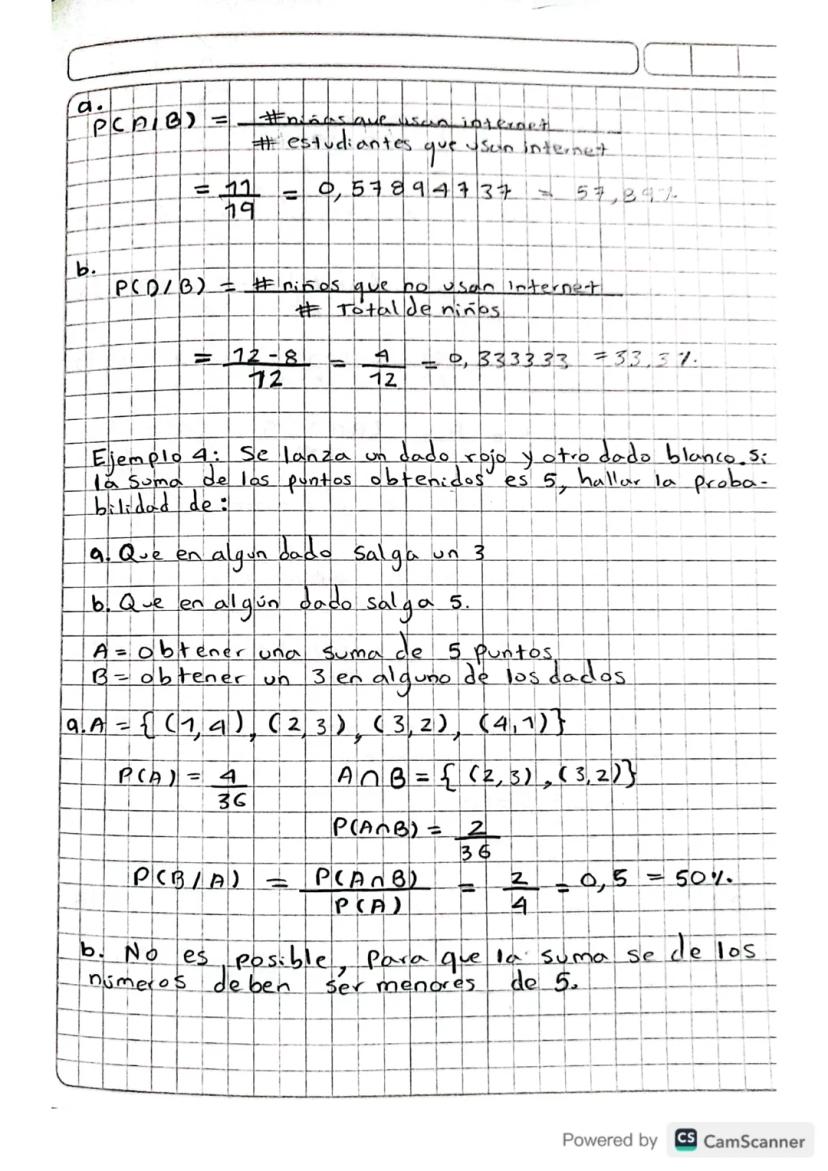 a.
P(A/B) = #niñas que usan internet
# estudiantes que usan internet
= 11/19 = 0,57894737 = 57,89%
b.
P(D/B) = # niños que no usan internet
# Total de niños
= 12-8/12 = 4/12 = 0,333333 = 33,3%.
Ejemplo 4: Se lanza un dado rojo y otro dado blanco. Si
la suma de los puntos obtenidos es 5, hallar la proba-
bilidad de:
a. Que en algun dado salga un 3
b. Que en algún dado salga 5.
A = obtener una suma de 5 puntos
B = obtener un 3 en alguno de los dados
a. A = {(1,4), (2,3), (3,2), (4,1)}
P(A) = 4/36 A∩B = {(2,3), (3,2)}
P(A∩B) = 2/36
P(B/A) = P(A∩B)/P(A) = 2/4 = 0,5 = 50%.
b. No es posible, Para que la suma se de los
números deben ser menores de 5.
Powered by CS CamScanner